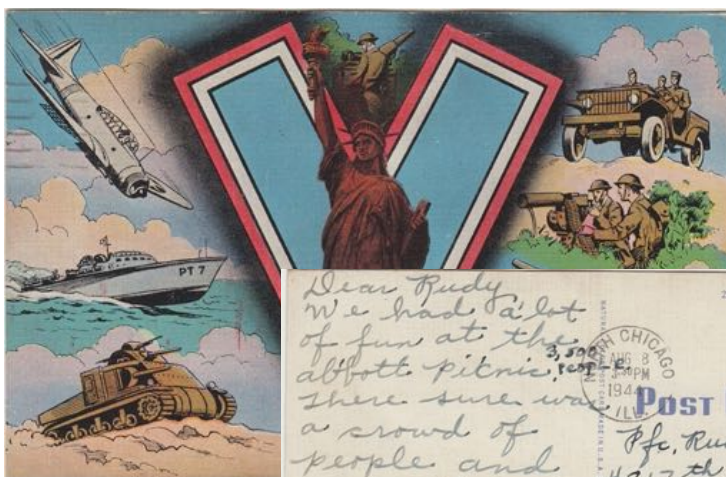 PT 7
Dear Rudy
We had a lot
of fun at the
abbott picnic.
3,500
people.
There sure was
a crowd of
people and
NORTH CHICAGO
AUG 8
PM
1944
ILL.
POST
Pfc. Ru
th